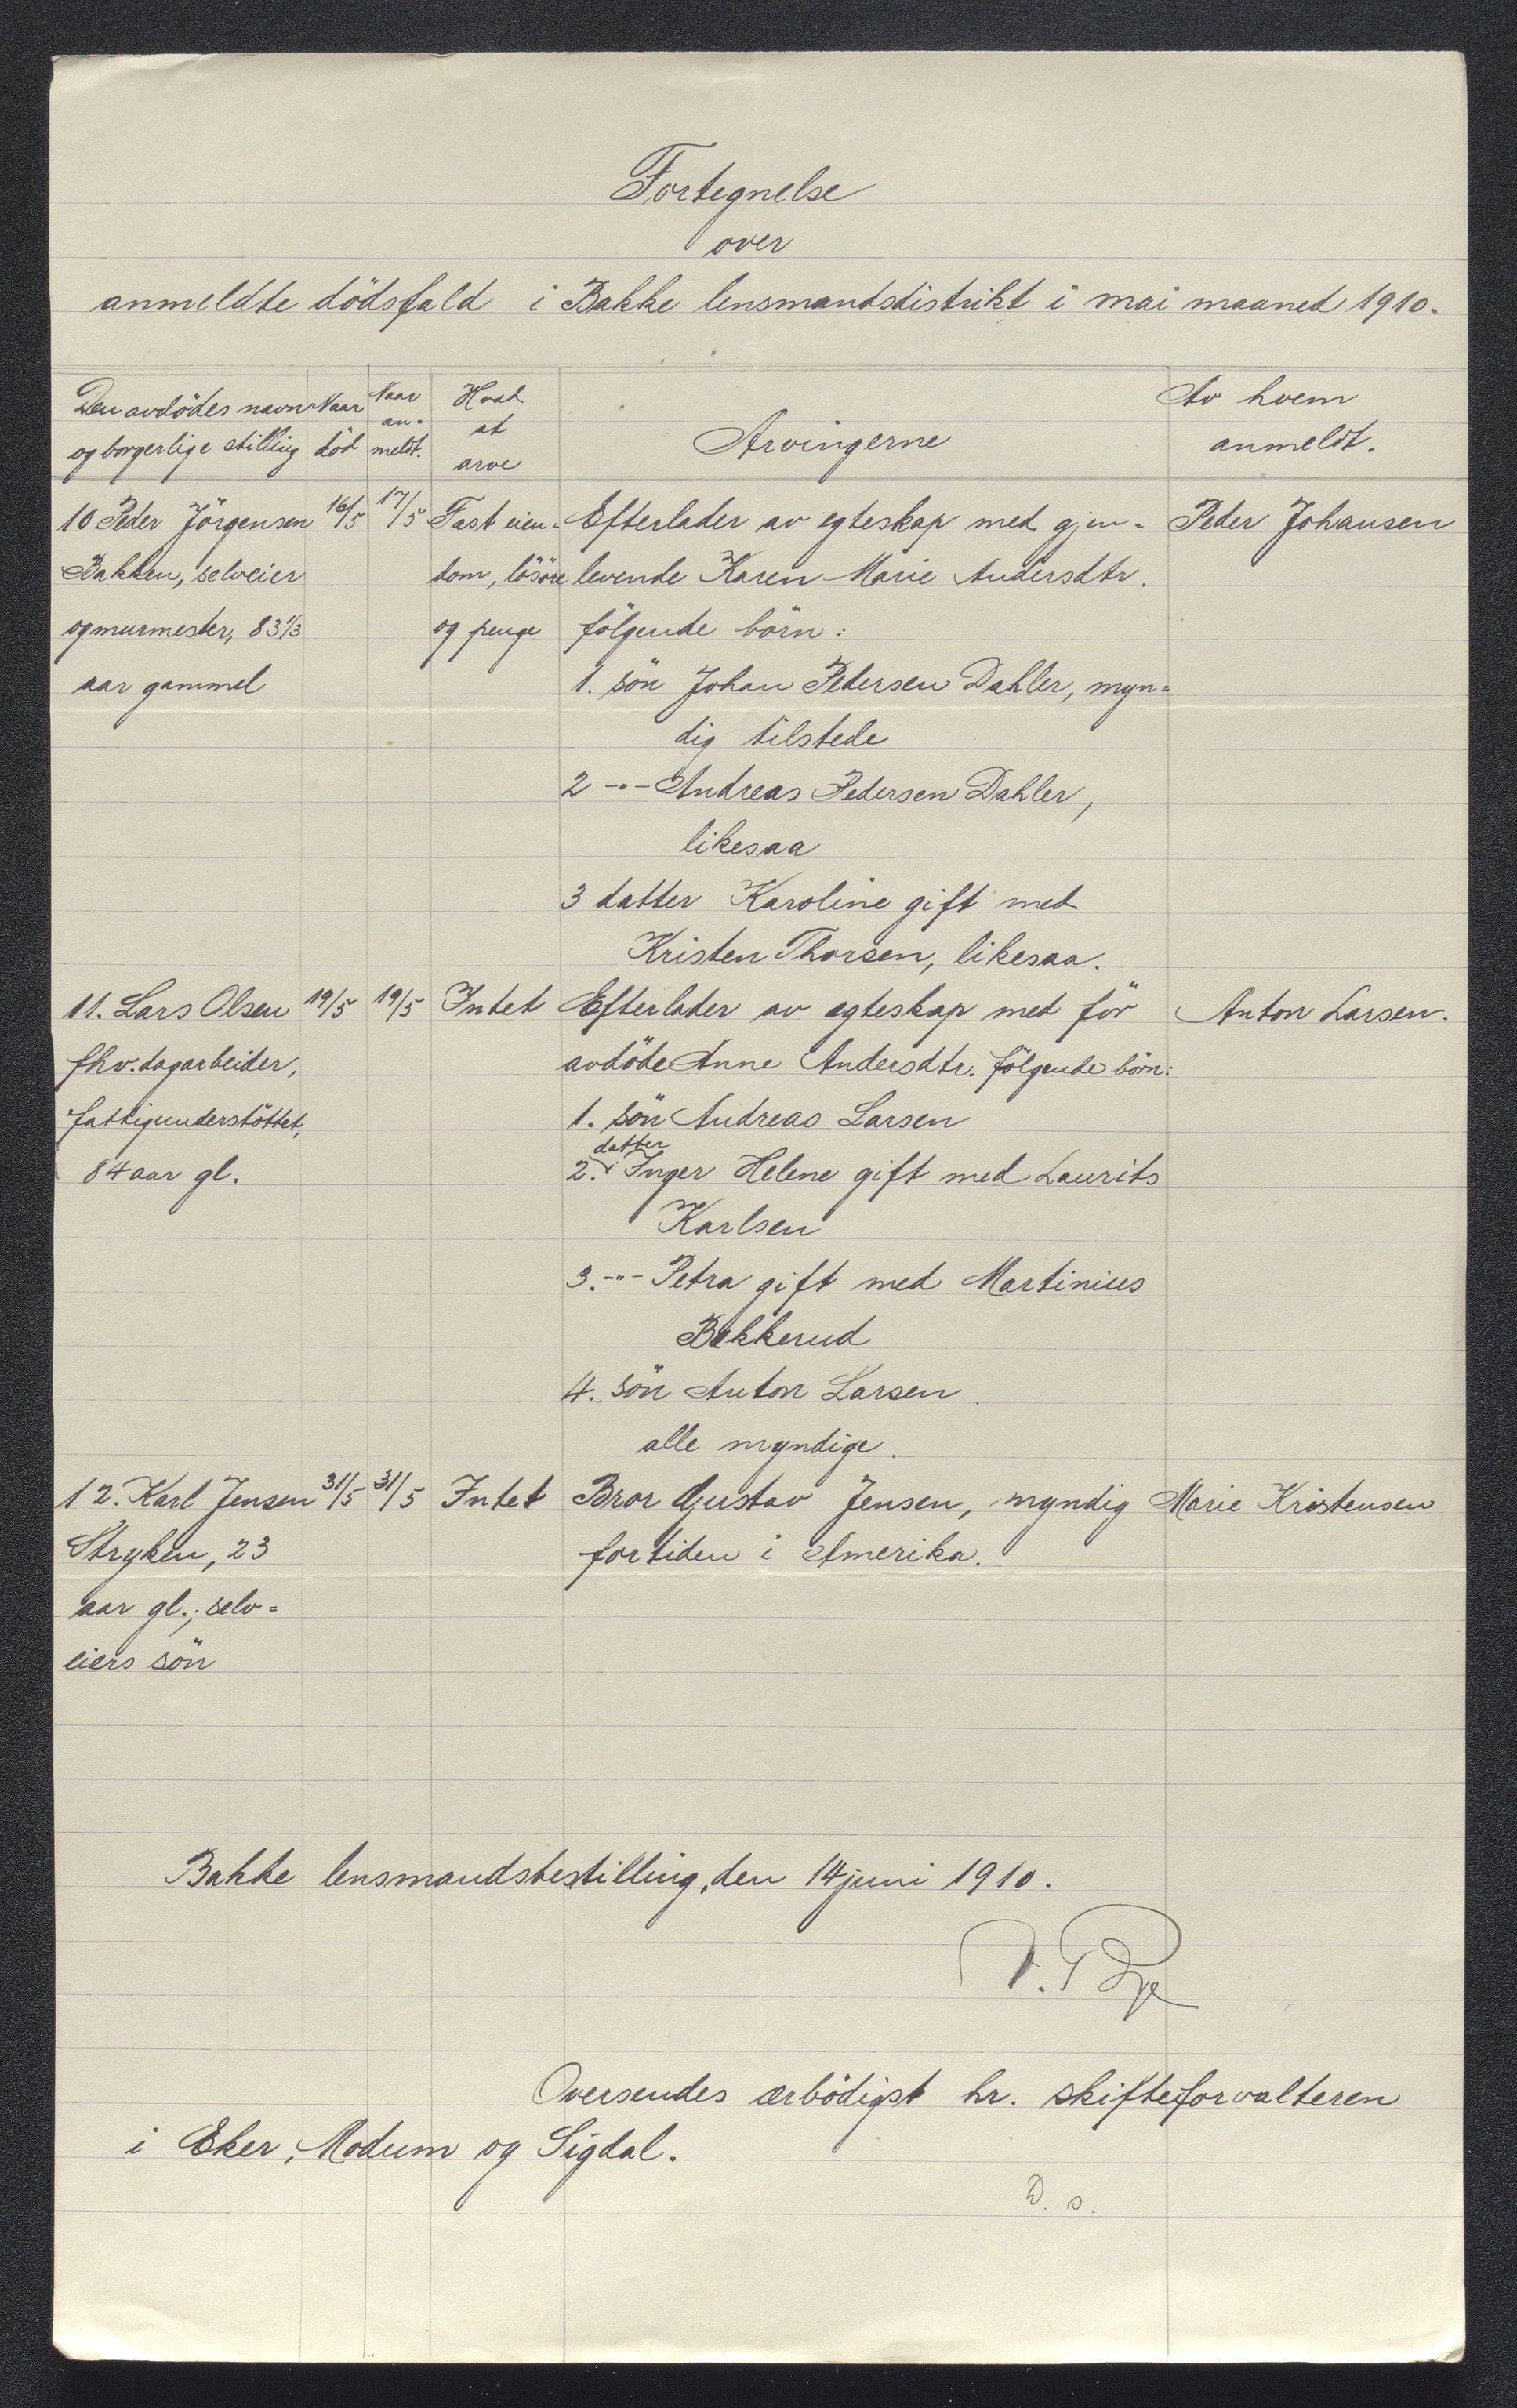 Fortegnelse
over
anmeldte dödsfald i Bakke lensmandsdistrikt i mai maaned 1910.
Den avdödes navn og borgerlige stilling
Naar död
Naar an= meldt.
Hvad at arve
Arvingerne
Av hvem anmeldt.
10 Peder Jörgensen
Bakken, selveier
og murmester, 83 1/3
aar gammel
16/5
17/5
Fast eien=
dom, lösöre
og penge
Efterlader av egteskap med gjen=
levende Karen Marie Andersdtr.
fölgende börn:
1. sön Johan Pedersen Dahler, myn=
dig tilstede
2 -"- Andreas Pedersen Dahler,
likesaa
3 datter Karoline gift med
Kristen Thorsen, likesaa.
Peder Johansen
11. Lars Olsen
fhv. dagarbeider,
fattigunderstöttet,
84 aar gl.
19/5
19/5
Intet
Efterlader av egteskap med för
avdöde Anne Andersdtr. fölgende börn:
1. sön Andreas Larsen
2. datter Inger Helene gift med Laurits
Karlsen
3. -"- Petra gift med Martinius
Bakkerud
4. sön Anton Larsen
alle myndige.
Anton Larsen.
12. Karl Jensen
Stryken, 23
aar gl.; selv=
eiers sön
31/5
31/5
Intet
Bror Gustav Jensen, myndig
fortiden i Amerika.
Marie Kristensen
Bakke lensmandsbestilling, den 14 juni 1910.
Oversendes ærbödigst hr. skifteforvalteren
i Eker, Modum og Sigdal.
D. s.